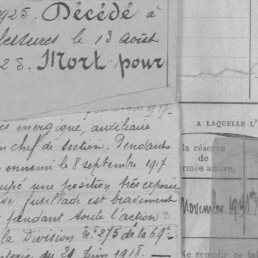 1925. Décédé à
lectures le 13 Août
25. Mort pour
es energique, auxiliaire
n chef de section. Pendant
ennemi le 8 septembre 1917
une position très exposée
fusillade est bravement
pendant toute l'action
la Division n° 275 de la 69e
du 21 Juin 1918. -
A LAQUELLE L'
la réserve
de
rmée active.
Novembre
Ne renvoie ce